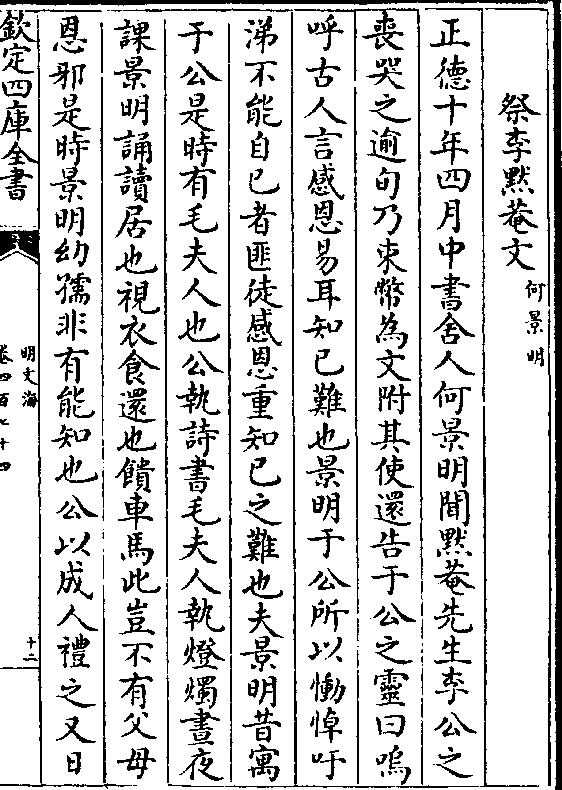 祭李默菴文
何景明
正德十年四月中書舍人何景明聞默菴先生李公之
喪哭之逾旬乃束幣為文附其使還告于公之靈曰嗚
呼古人言感恩易耳知已難也景明于公所以慟悼吁
涕不能自已者匪徒感恩重知已之難也夫景明昔寓
于公是時有毛夫人也公執詩書毛夫人執燈燭晝夜
課景明誦讀居也視衣食還也饋車馬此豈不有父母
恩邪是時景明幼孺非有能知也公以成人禮之又日
欽定四庫全書
明文海
卷四百七十四
十二